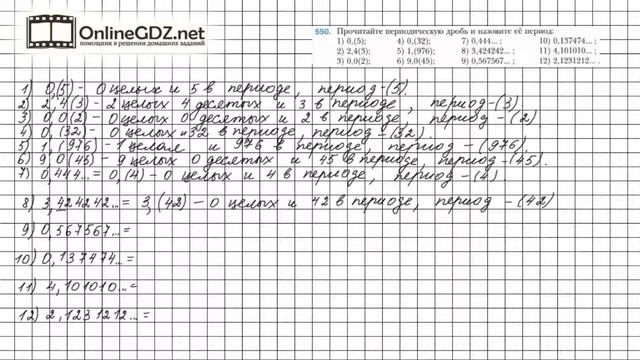 OnlineGDZ.net
помощник в решении домашних заданий
550. Прочитайте периодическую дробь и назовите её период:
1) 0,(5); 4) 0,(32); 7) 0,444... ; 10) 0,137474... ;
2) 2,4(3); 5) 1,(976); 8) 3,424242... ; 11) 4,101010... ;
3) 0,0(2); 6) 9,0(45); 9) 0,567567... ; 12) 2,1231212... .
1) 0,(5) - 0 целых и 5 в периоде, период-(5).
2) 2,4(3) - 2 целых 4 десятых и 3 в периоде, период-(3)
3) 0,0(2) - 0 целых 0 десятых и 2 в периоде, период - (2)
4) 0,(32) - 0 целых и 32 в периоде, период - (32).
5) 1,(976) - 1 целая и 976 в периоде, период - (976).
6) 9,0(45) - 9 целых 0 десятых и 45 в периоде, период-(45).
7) 0,444... = 0,(4) - 0 целых и 4 в периоде, период - (4)
8) 3,424242... = 3,(42) - 0 целых и 42 в периоде, период - (42)
9) 0,567567... =
10) 0,137474... =
11) 4,101010... =
12) 2,1231212... =